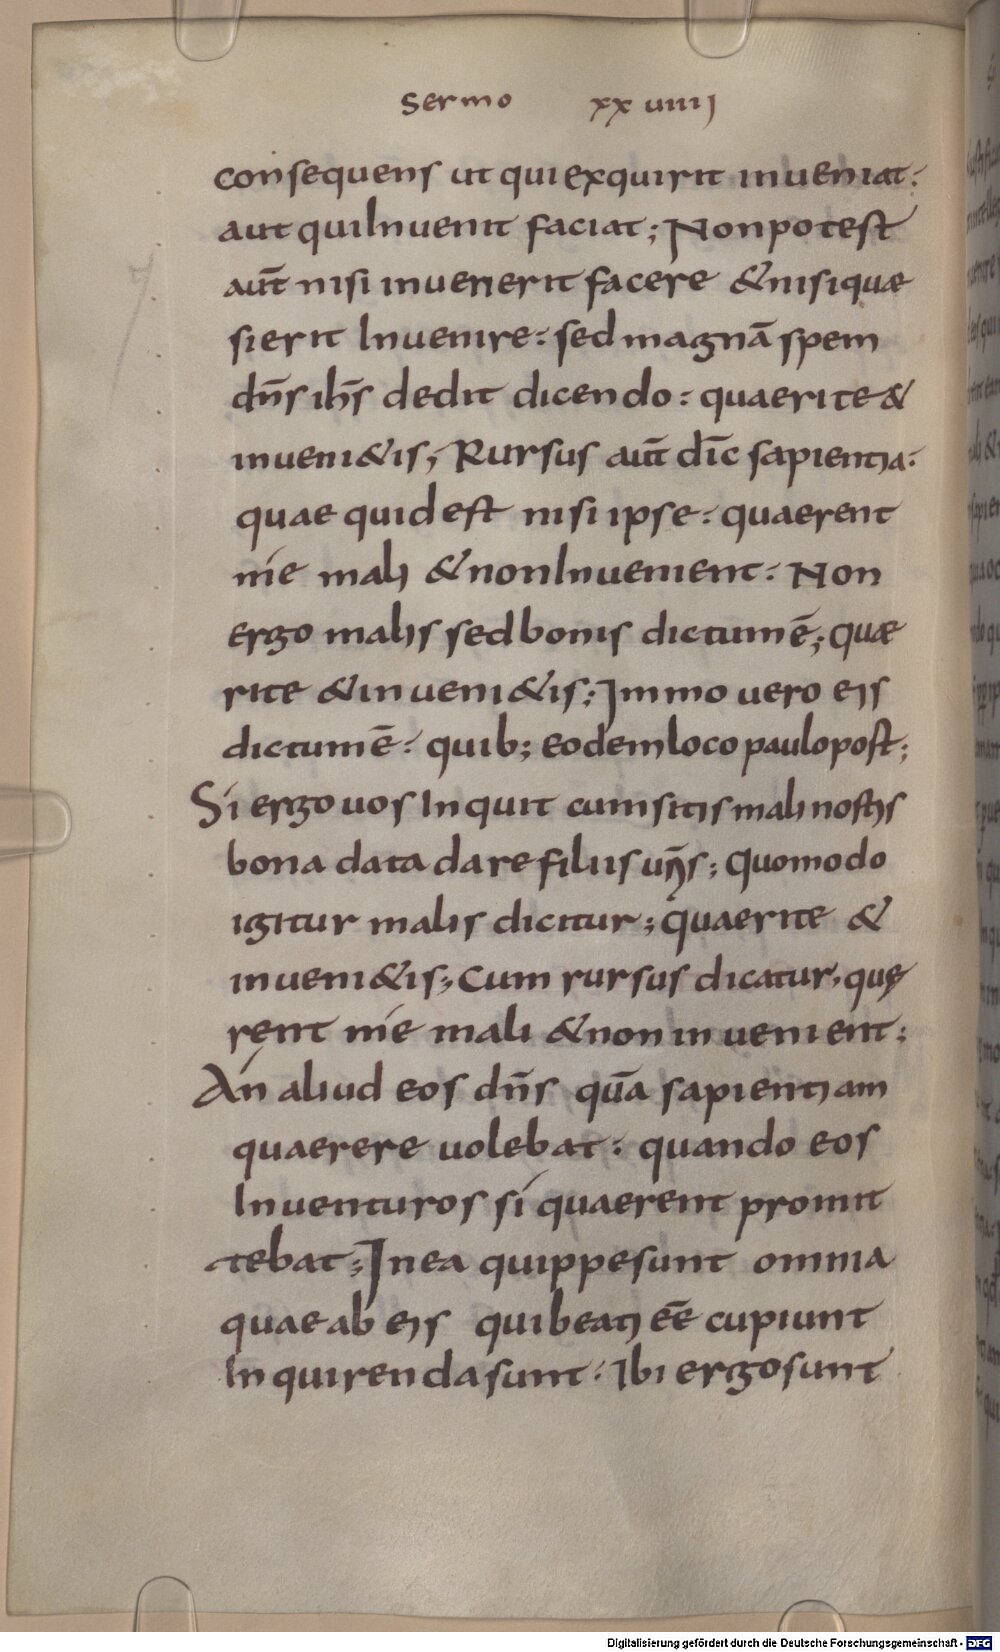 Sermo xx uiiij
consequens ut qui exquirit inueniat:
aut qui Inuenit faciat; Non potest
aut̄ nisi inuenerit facere & nisi quae
sierit Inuenire: sed magnā spem
dn̄s ih̄s dedit dicendo: quaerite &
inueni&is; Rursus aut̄ dīc sapientia:
quae quid est nisi ipse: quaerent
me mali & non Inuenient: Non
ergo malis sed bonis dictum ē; quae
rite & inueni&is; Immo uero eis
dictum ē: quib; eodem loco paulo post;
Si ergo uos Inquit cum sitis mali nostis
bona data dare filiis ur̄is; Quomodo
igitur malis dicitur; Quaerite &
inueni&is; Cum rursus dicatur, quę
rent me mali & non inuenient;
An aliud eos dn̄s quā sapientiam
quaerere uolebat: quando eos
Inuenturos si quaerent promit
tebat; In ea quippe sunt omnia
quae ab eis qui beati eē cupiunt
Inquirenda sunt: Ibi ergo sunt
Digitalisierung gefördert durch die Deutsche Forschungsgemeinschaft - DFG